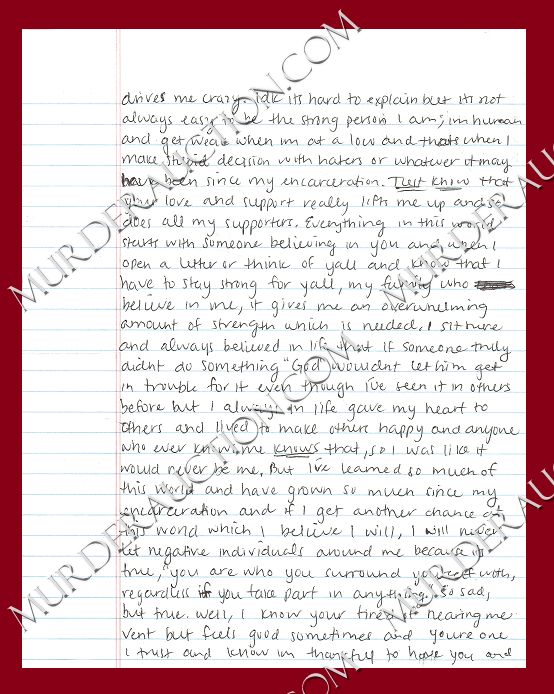 drives me crazy. idk its hard to explain but its not
always easy to be the strong person I am; im human
and get weak when im at a low and thats when I
make stupid decision with haters or whatever it may
have been since my encarceration. Just know that
your love and support really lifts me up and so
does all my supporters. Everything in this world
starts with someone believing in you and when I
open a letter or think of yall and know that I
have to stay strong for yall, my family who
believe in me, it gives me an overwhelming
amount of strength which is needed. I sit here
and always believed in life that if someone truly
didnt do something "God wouldnt let him get
in trouble for it even though I've seen it in others
before but I always in life gave my heart to
others and lived to make others happy and anyone
who ever know me knows that, so I was like it
would never be me. But I've learned so much of
this world and have grown so much since my
encarceration and if I get another chance at
this world which I believe I will, I will never
let negative individuals around me because its
true, "you are who you surround yourself with,
regardless if you take part in anything. So sad,
but true. Well, I know your tired of hearing me
vent but feels good sometimes and youre one
I trust and know im thankful to have you and
MURDERAUCTION.COM